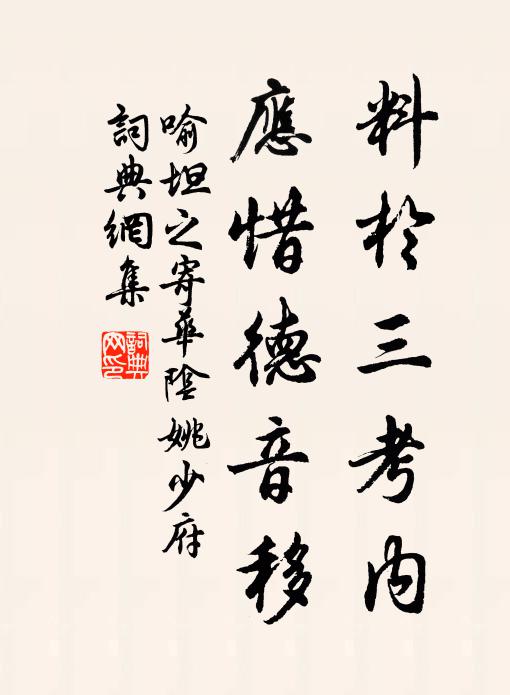 料於三考內
應惜德音移
喻坦之寄華陰姚少府
詞典網集
詞典網印